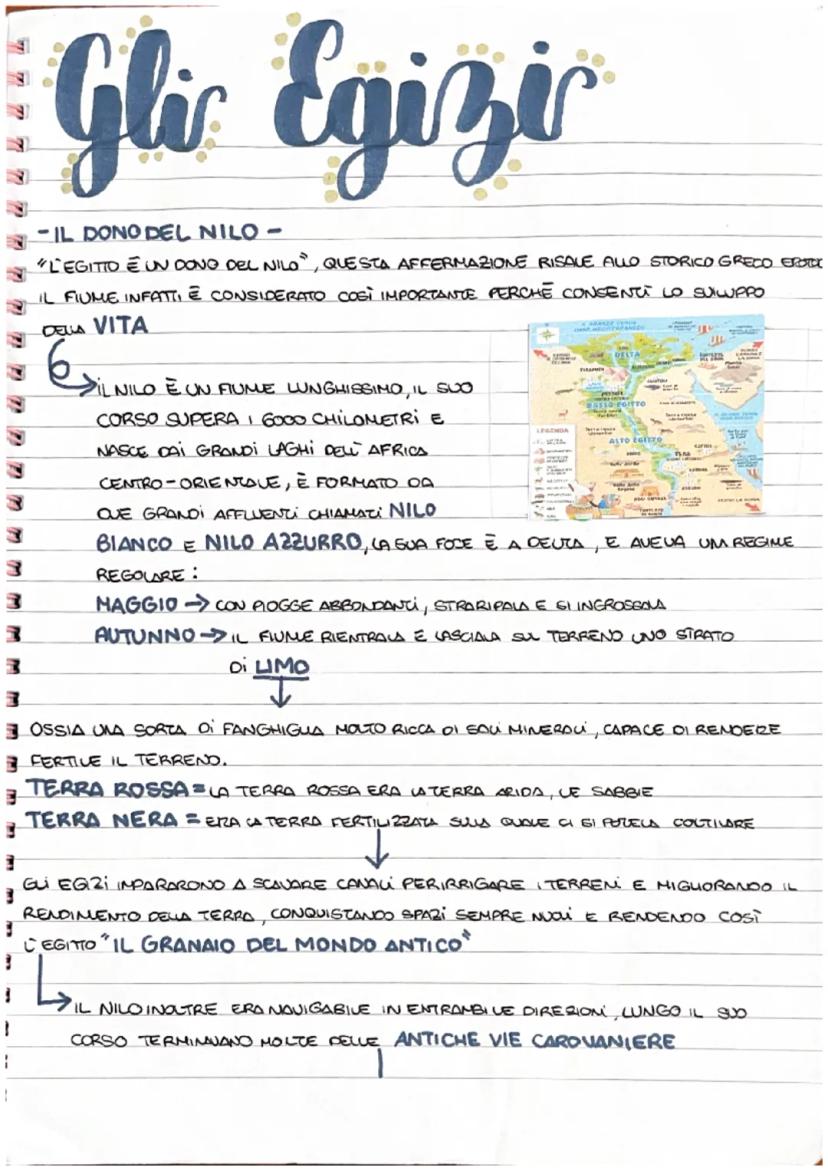 Gli Egizi
- IL DONO DEL NILO -
"L'EGITTO È UN DONO DEL NILO", QUESTA AFFERMAZIONE RISALE ALLO STORICO GRECO
IL FIUME INFATTI È CONSIDERATO COSÌ IMPORTANTE PERCHÈ CONSENTÌ LO SVILUPPO
DELLA VITA
IL NILO È UN FIUME LUNGHISSIMO, IL SUO
CORSO SUPERA I 6000 CHILOMETRI E
NASCE DAI GRANDI LAGHI DELL'AFRICA
CENTRO-ORIENTALE, È FORMATO DA
DUE GRANDI AFFLUENTI CHIAMATI NILO
BIANCO E NILO AZZURRO, LA SUA FOCE È A DELTA, E AVEVA UN REGIME
REGOLARE:
MAGGIO → CON PIOGGE ABBONDANTI, STRARIPAVA E SI INGROSSAVA
AUTUNNO → IL FIUME RIENTRAVA E LASCIAVA SUL TERRENO UNO STRATO
DI LIMO
OSSIA UNA SORTA DI FANGHIGLIA MOLTO RICCA DI SALI MINERALI, CAPACE DI RENDERE
FERTILE IL TERRENO.
TERRA ROSSA = LA TERRA ROSSA ERA LA TERRA ARIDA, LE SABBIE
TERRA NERA = ERA LA TERRA FERTILIZZATA SULLA QUALE CI SI POTEVA COLTIVARE
GLI EGIZI IMPARARONO A SCAVARE CANALI PER IRRIGARE I TERRENI E MIGLIORANDO IL
RENDIMENTO DELLA TERRA, CONQUISTANDO SPAZI SEMPRE NUOVI E RENDENDO COSÌ
L'EGITTO "IL GRANAIO DEL MONDO ANTICO"
IL NILO INOLTRE ERA NAVIGABILE IN ENTRAMBI LE DIREZIONI, LUNGO IL SUO
CORSO TERMINAVANO MOLTE DELLE ANTICHE VIE CAROVANIERE
DELTA
BASSO EGITTO
ALTO EGITTO
LEGENDA